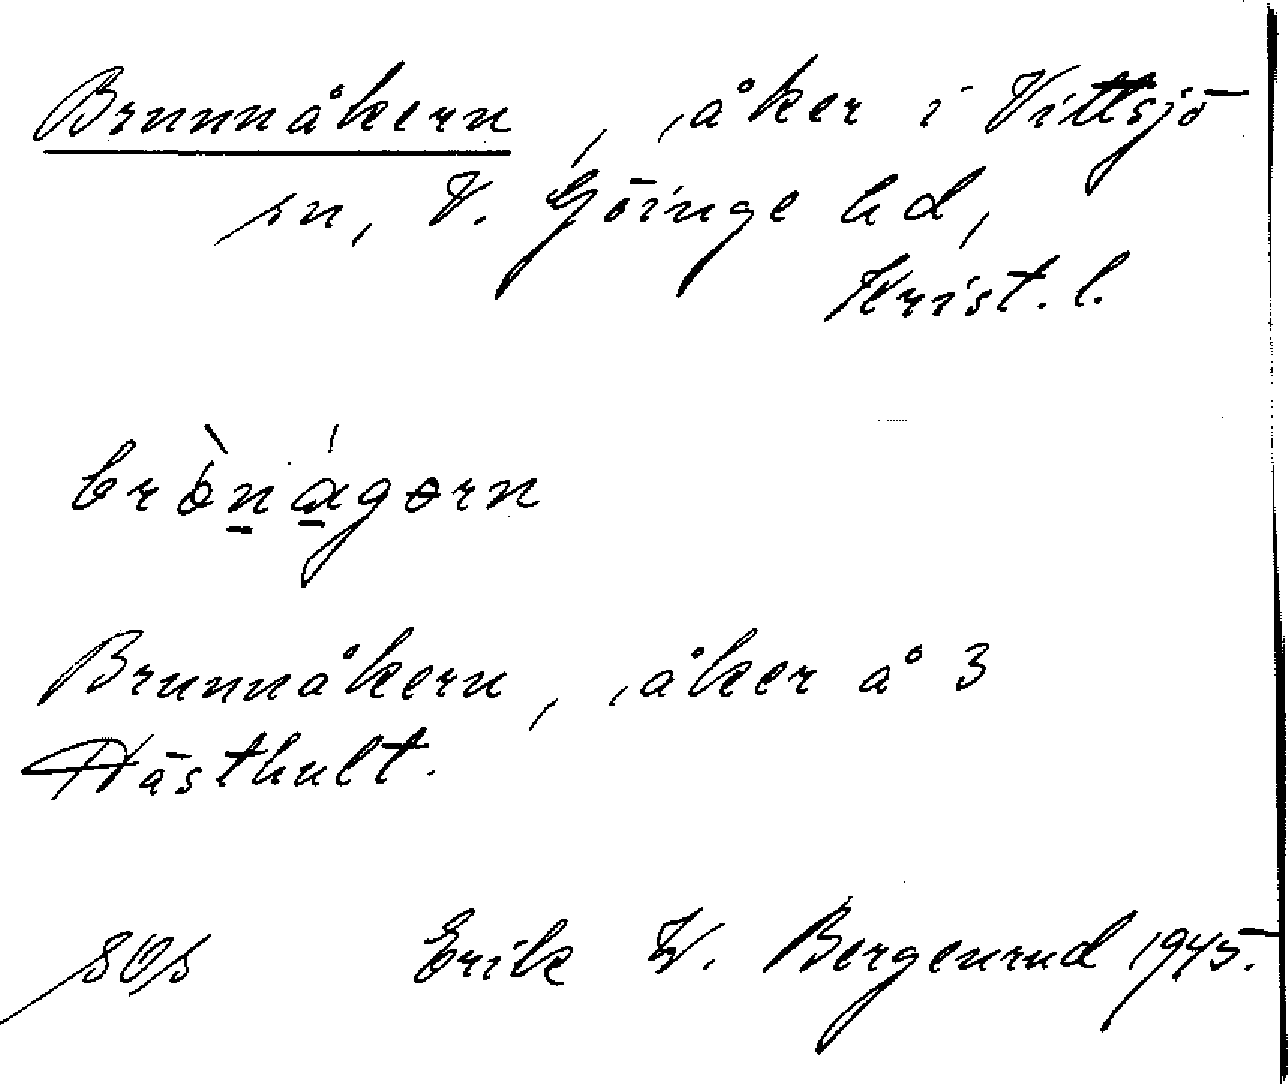 Brunnåkern, åker i Vittsjö
sn, V. Göinge hd,
Krist. l.
brònágərn
Brunnåkern, åker å 3
Hästhult.
Erik W. Bergenrud 1945.